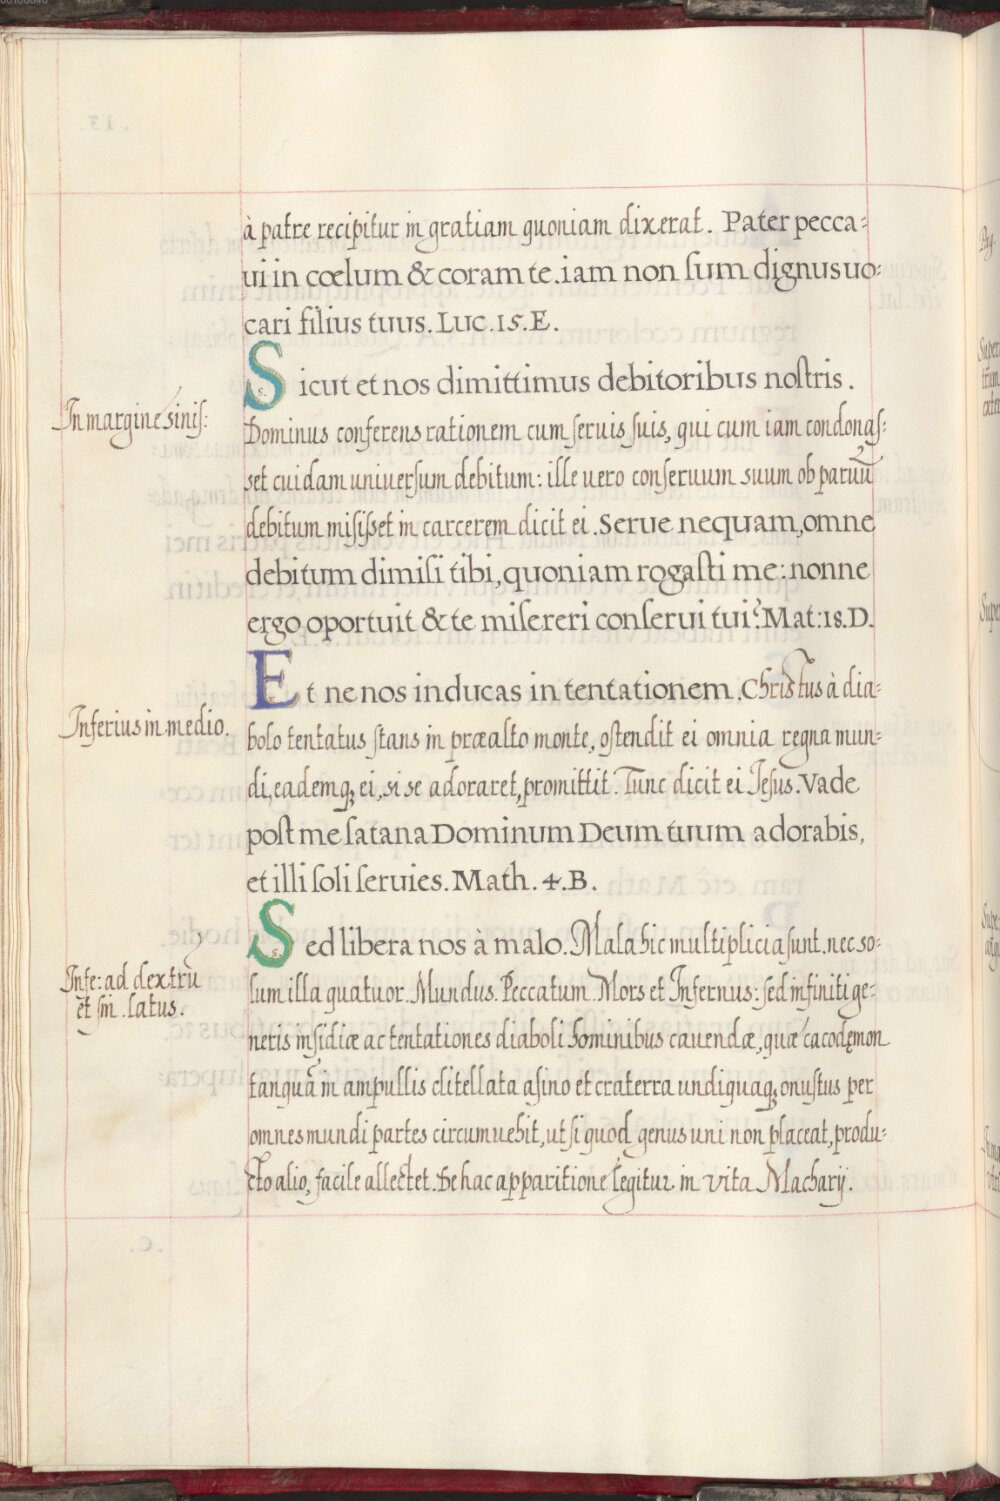 à patre recipitur in gratiam quoniam dixerat. Pater pecca=
ui in cœlum & coram te. iam non sum dignus uo=
cari filius tuus. Luc. 15. E.
In margine sinis:
Sicut et nos dimittimus debitoribus nostris.
Dominus conferens rationem cum seruis suis, qui cum iam condonas=
set cuidam universum debitum: ille uero conseruum suum ob paruū
debitum misisset in carcerem dicit ei. Serue nequam, omne
debitum dimisi tibi, quoniam rogasti me: nonne
ergo oportuit & te misereri conserui tui? Mat: 18. D.
Inferius in medio.
Et ne nos inducas in tentationem. Christus à dia=
bolo tentatus stans in præalto monte, ostendit ei omnia regna mun=
di, eademq; ei, si se adoraret, promittit. Tunc dicit ei Jesus. Vade
post me satana Dominum Deum tuum adorabis,
et illi soli seruies. Math. 4. B.
Infe: ad dextrū
et sin. latus.
Sed libera nos à malo. Mala hic multiplicia sunt. nec so=
lum illa quatuor. Mundus. Peccatum. Mors et Infernus: sed infiniti ge=
neris insidiæ ac tentationes diaboli hominibus cauendæ, quæ cacodęmon
tanquā in ampullis clitellata asino et craterra undiquaq; onustus per
omnes mundi partes circumuehit, ut si quod genus uni non placeat, produ=
cto alio, facile allectet. De hac apparitione legitur in vita Macharij.